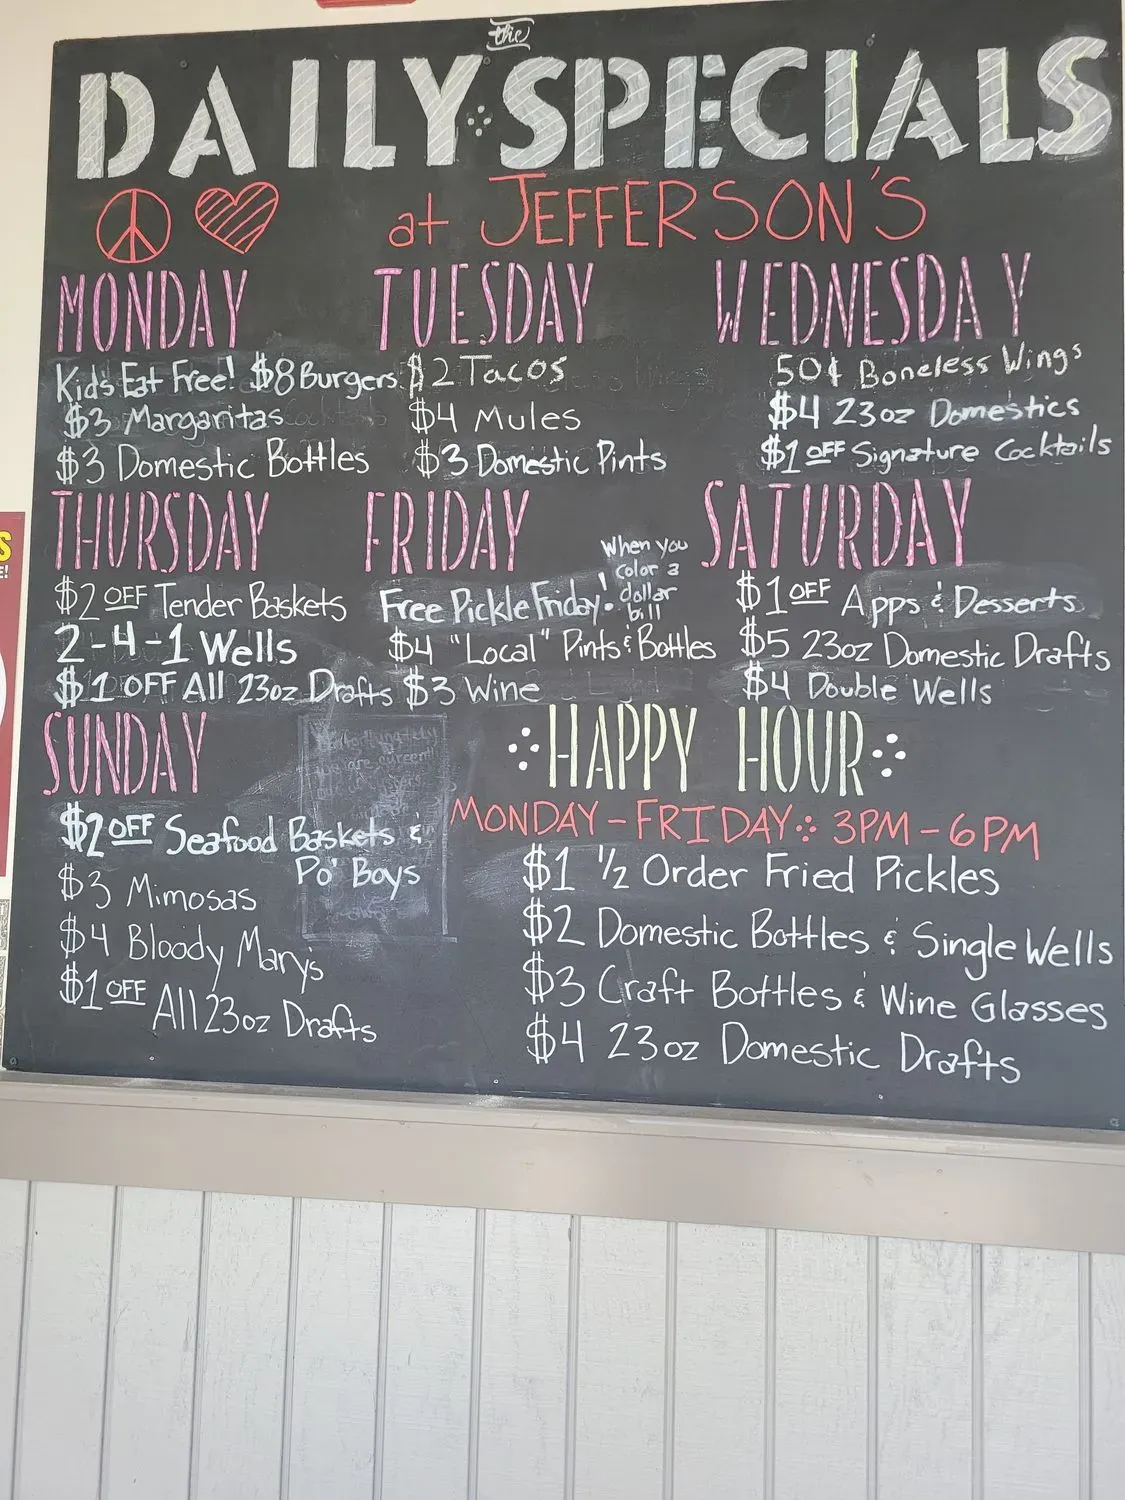 the
DAILY SPECIALS
at JEFFERSON'S
MONDAY
Kid's Eat Free! $8 Burgers
$3 Margaritas
$3 Domestic Bottles
TUESDAY
$2 Tacos
$4 Mules
$3 Domestic Pints
WEDNESDAY
50¢ Boneless Wings
$4 23oz Domestics
$1 OFF Signature Cocktails
THURSDAY
$2 OFF Tender Baskets
2-4-1 Wells
$1 OFF All 23oz Drafts
FRIDAY
Free Pickle Friday!
When you
color a
dollar
bill
$4 "Local" Pints & Bottles
$3 Wine
SATURDAY
$1 OFF Apps & Desserts
$5 23oz Domestic Drafts
$4 Double Wells
SUNDAY
$2 OFF Seafood Baskets &
Po' Boys
$3 Mimosas
$4 Bloody Mary's
$1 OFF All 23oz Drafts
HAPPY HOUR
MONDAY-FRIDAY: 3PM-6PM
$1 1/2 Order Fried Pickles
$2 Domestic Bottles & Single Wells
$3 Craft Bottles & Wine Glasses
$4 23oz Domestic Drafts